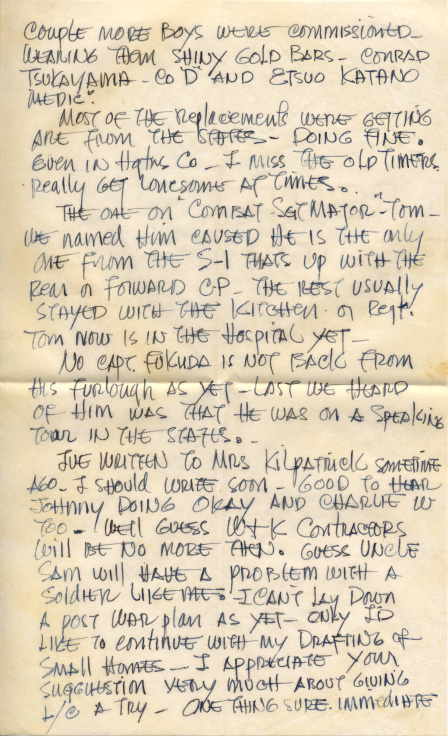 COUPLE MORE BOYS WERE COMMISSIONED-
WEARING THEM SHINY GOLD BARS - CONRAD
TSUKAYAMA - CO "D" AND ETSUO KATANO
MEDIC.
MOST OF THE Replacements WERE GETTING
ARE FROM THE STATES - DOING FINE.
EVEN IN Hqtrs Co - I MISS THE OLD TIMERS.
Really GET lonesome AT TIMES.
THE ONE ON "COMBAT SGT MAJOR" - TOM -
WE named HIM CAUSED HE IS THE only
ONE FROM THE S-1 THATS UP WITH THE
REAR or FORWARD C.P. - THE REST USUALLY
STAYED WITH THE KITCHEN or Regt.
TOM NOW IS IN THE HOSPITAL YET -
NO CAPT. FUKUDA IS NOT BACK FROM
HIS FURLOUGH AS YET - LAST WE HEARD
OF HIM WAS THAT HE WAS ON A SPEAKING
TOUR IN THE STATES. -
I'VE WRITTEN TO MRS KILPATRICK SOMETIME
AGO - I SHOULD WRITE SOON - GOOD TO HEAR
JOHNNY DOING OKAY AND CHARLIE W
TOO - WELL GUESS W+K CONTRACTORS
WILL BE NO MORE THEN. GUESS UNCLE
SAM WILL HAVE A PROBLEM WITH A
SOLDIER LIKE ME. I CAN'T LAY DOWN
A POST WAR PLAN AS YET - ONLY I'D
LIKE TO CONTINUE WITH MY DRAFTING OF
SMALL HOMES - I APPRECIATE YOUR
SUGGESTION VERY MUCH ABOUT GIVING
L/C A TRY - ONE THING SURE. IMMEDIATE